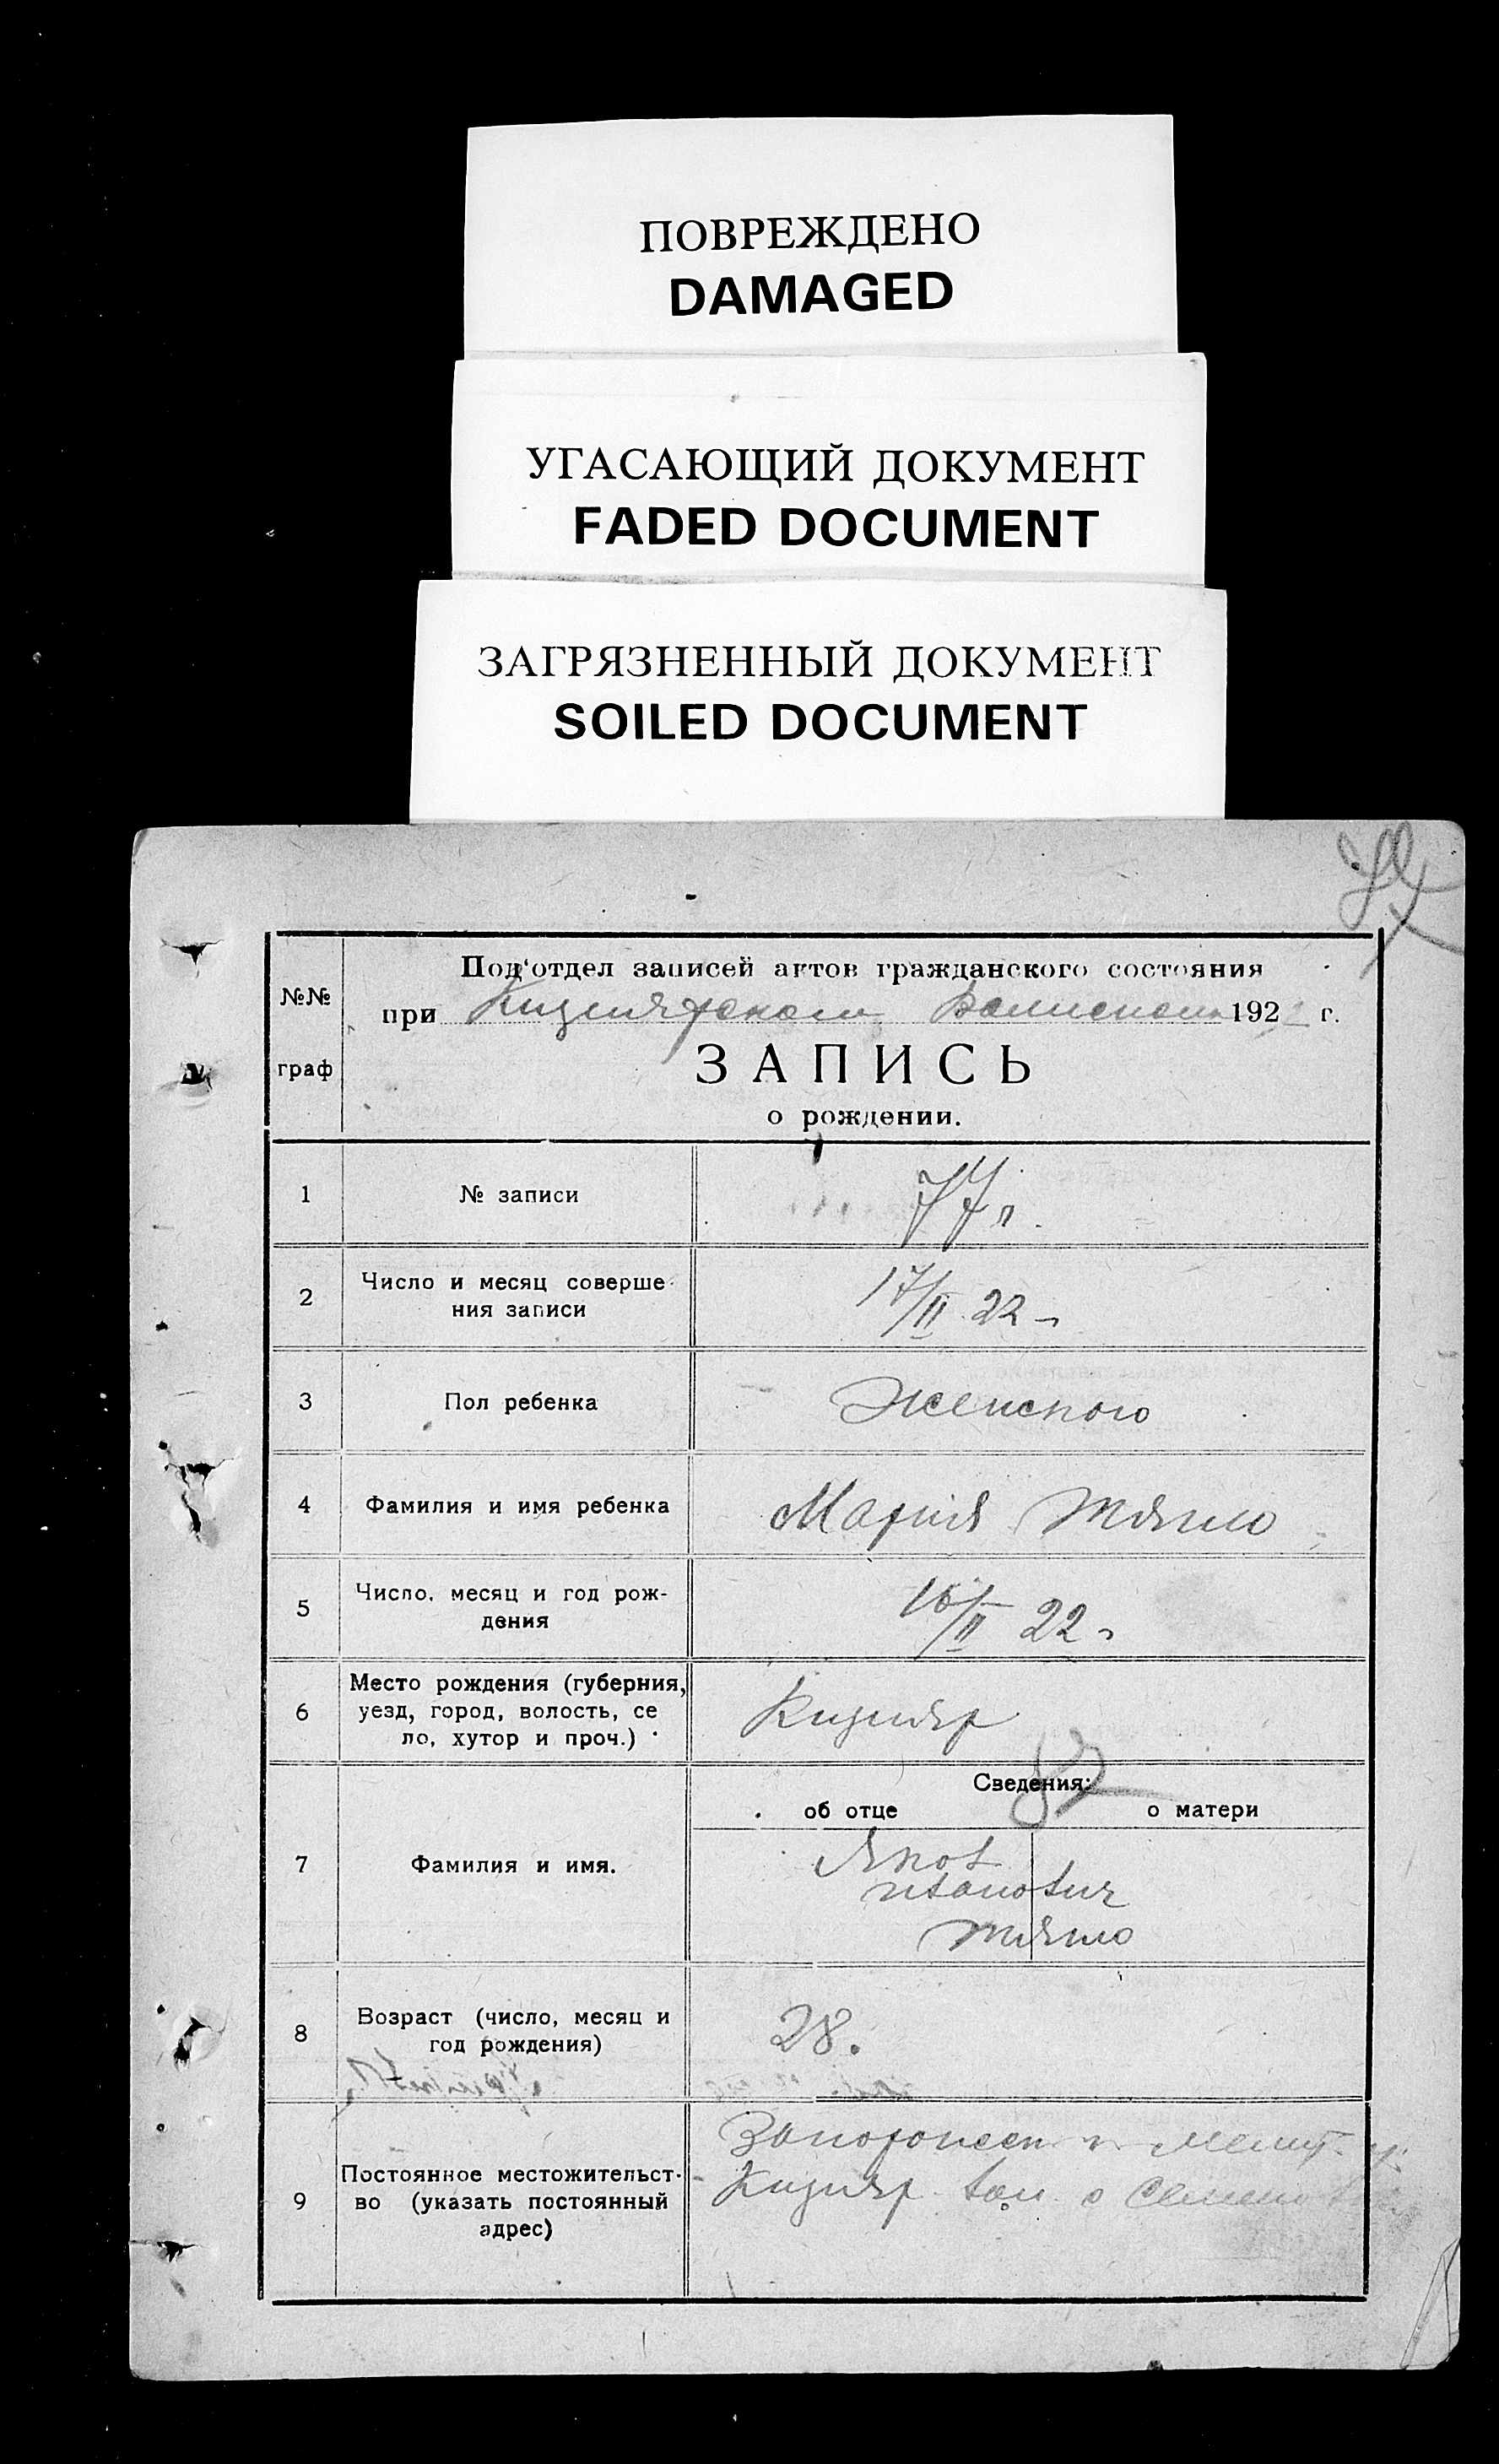 ПОВРЕЖДЕНО
DAMAGED
УГАСАЮЩИЙ ДОКУМЕНТ
FADED DOCUMENT
ЗАГРЯЗНЕННЫЙ ДОКУМЕНТ
SOILED DOCUMENT
№№
граф
Под'отдел записей актов гражданского состояния
при Кизиярском 192 г.
ЗАПИСЬ
о рождении.
1 № записи 77
2 Число и месяц соверше-
ния записи 17/II 22
3 Пол ребенка Женского
4 Фамилия и имя ребенка Мария
5 Число, месяц и год рож-
дения 16/II 22
6 Место рождения (губерния,
уезд, город, волость, се
ло, хутор и проч.) Кизияр
82
Сведения:
об отце о матери
7 Фамилия и имя. Яков
8 Возраст (число, месяц и
год рождения) 28.
9 Постоянное местожительст-
во (указать постоянный
адрес)
Запорожск г Мелит. у.
Кизияр вол с